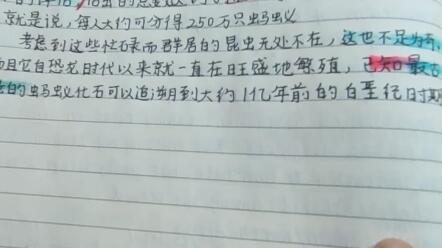 就是说,每人大约可分得250万只蚂蚁
考虑到这些忙碌而群居的昆虫无处不在,这也不足为奇,
且它自恐龙时代以来就一直在旺盛地繁殖,已知最古
的蚂蚁化石可以追溯到大约1亿年前的白垩纪时期